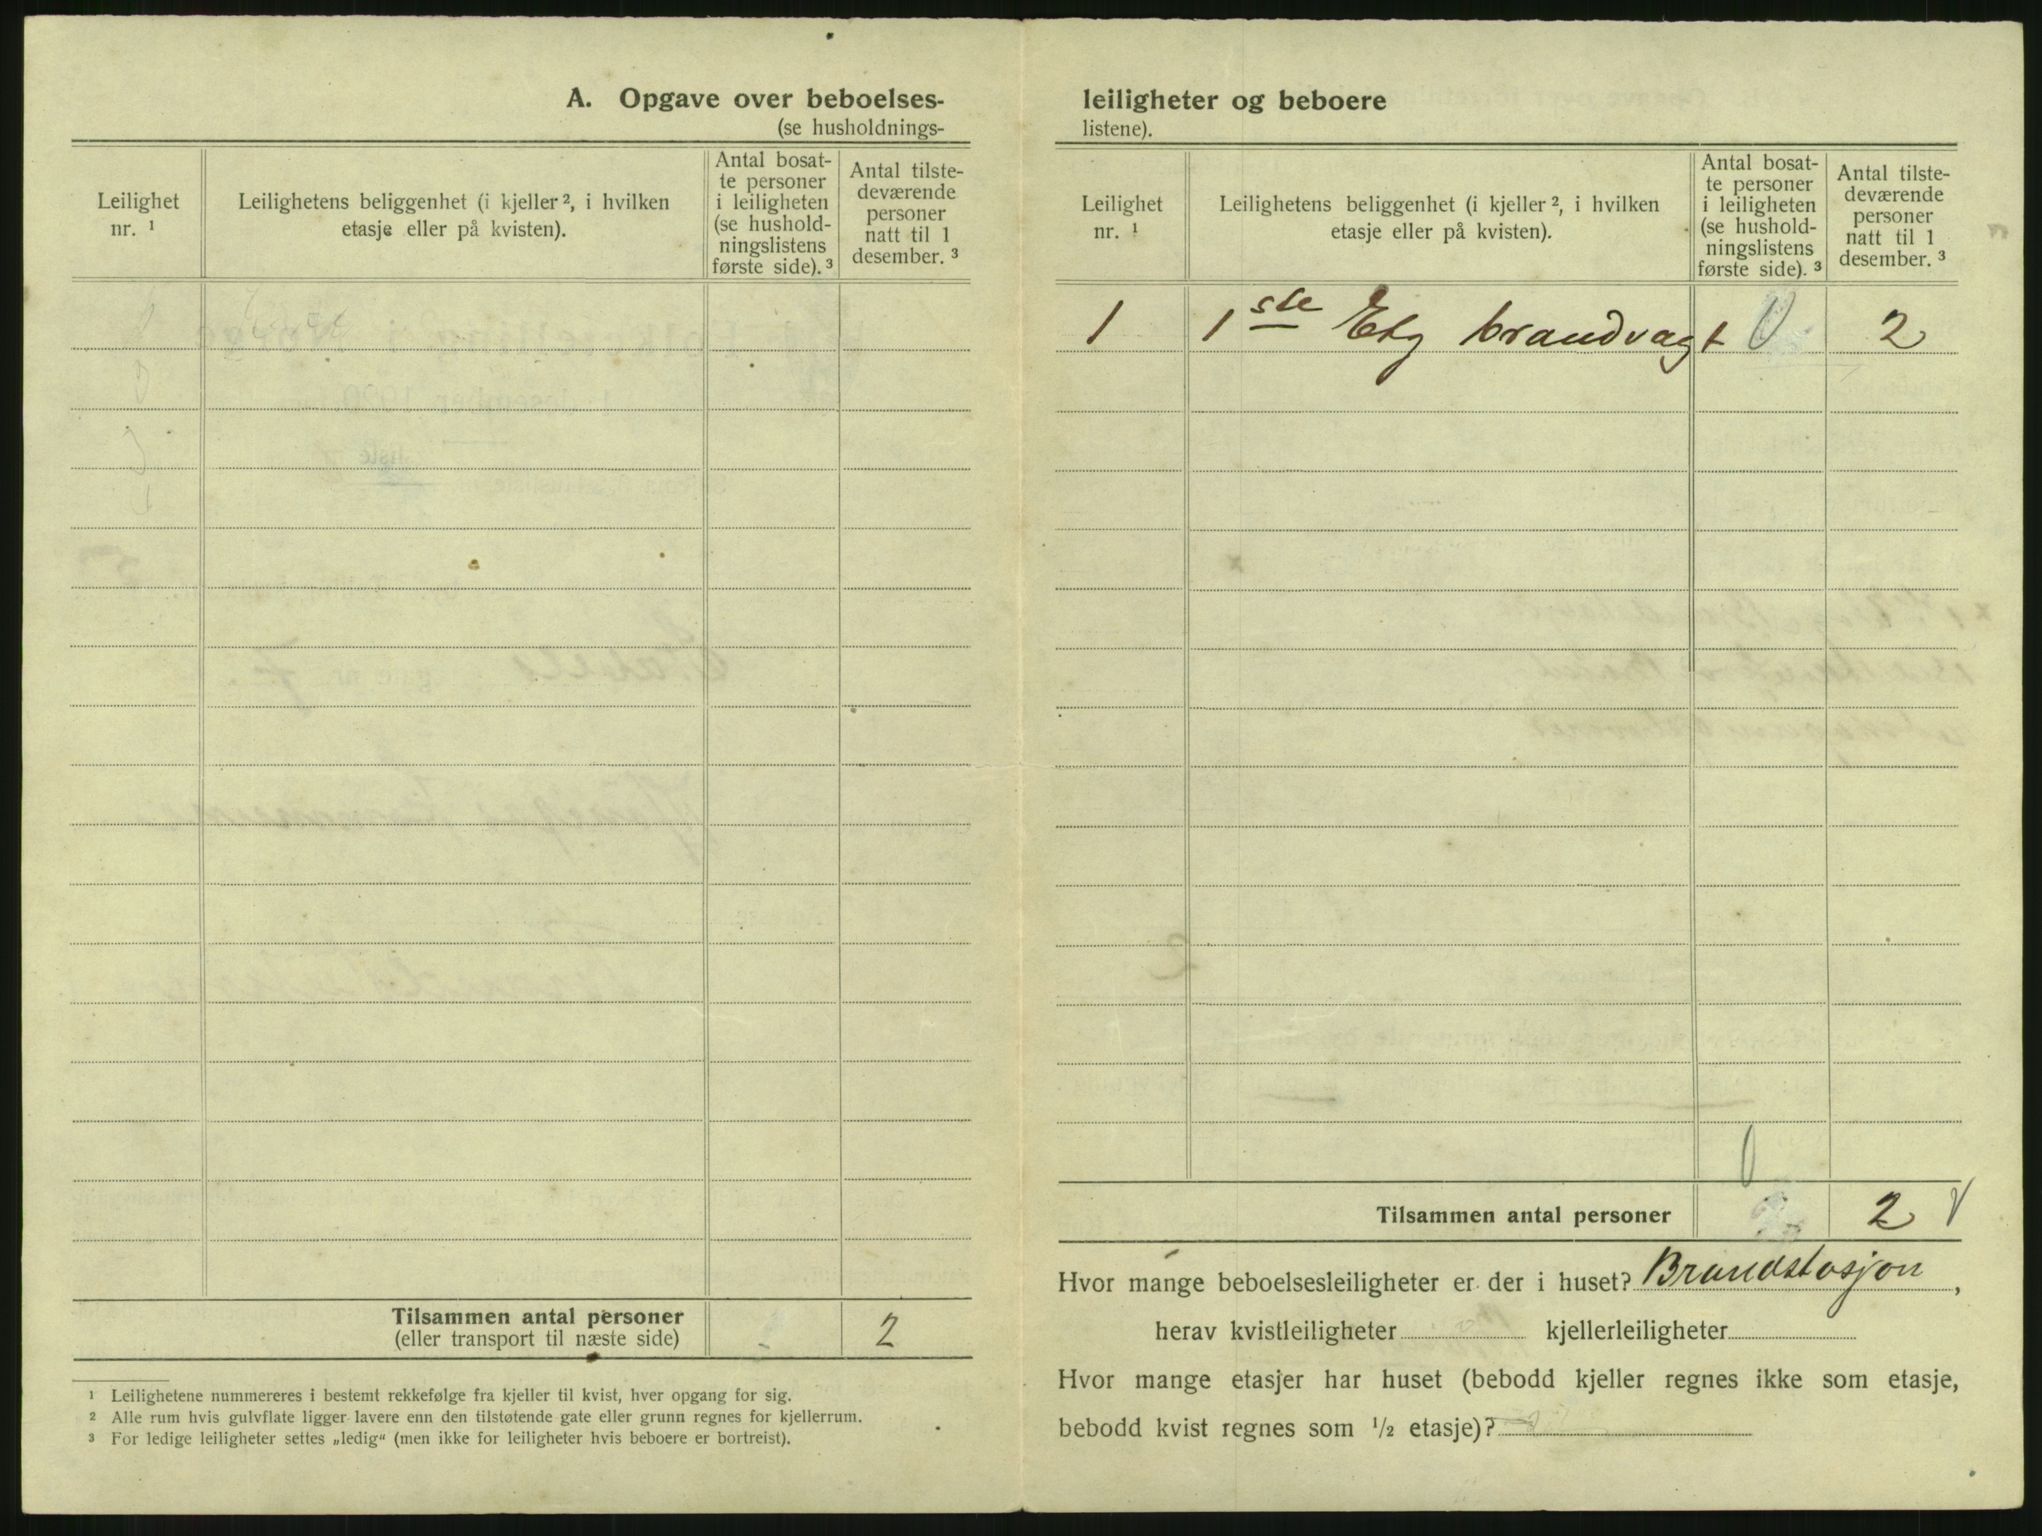 A. Opgave over beboelses-
(se husholdnings-
Leilighet nr. ¹
Leilighetens beliggenhet (i kjeller ², i hvilken
etasje eller på kvisten).
Antal bosat-
te personer
i leiligheten
(se hushold-
ningslistens
første side). ³
Antal tilste-
deværende
personer
natt til 1
desember. ³
Tilsammen antal personer
(eller transport til næste side)
2
¹ Leilighetene nummereres i bestemt rekkefølge fra kjeller til kvist, hver opgang for sig.
² Alle rum hvis gulvflate ligger lavere enn den tilstøtende gate eller grunn regnes for kjellerrum.
³ For ledige leiligheter settes „ledig“ (men ikke for leiligheter hvis beboere er bortreist).
leiligheter og beboere
listene).
Leilighet
nr. ¹
Leilighetens beliggenhet (i kjeller ², i hvilken
etasje eller på kvisten).
Antal bosat-
te personer
i leiligheten
(se hushold-
ningslistens
første side). ³
Antal tilste-
deværende
personer
natt til 1
desember. ³
1 1ste Etg brandvagt 0 2
0
Tilsammen antal personer 2 V
Hvor mange beboelsesleiligheter er der i huset? Brandstasjon,
herav kvistleiligheter kjellerleiligheter
Hvor mange etasjer har huset (bebodd kjeller regnes ikke som etasje,
bebodd kvist regnes som ½ etasje)?